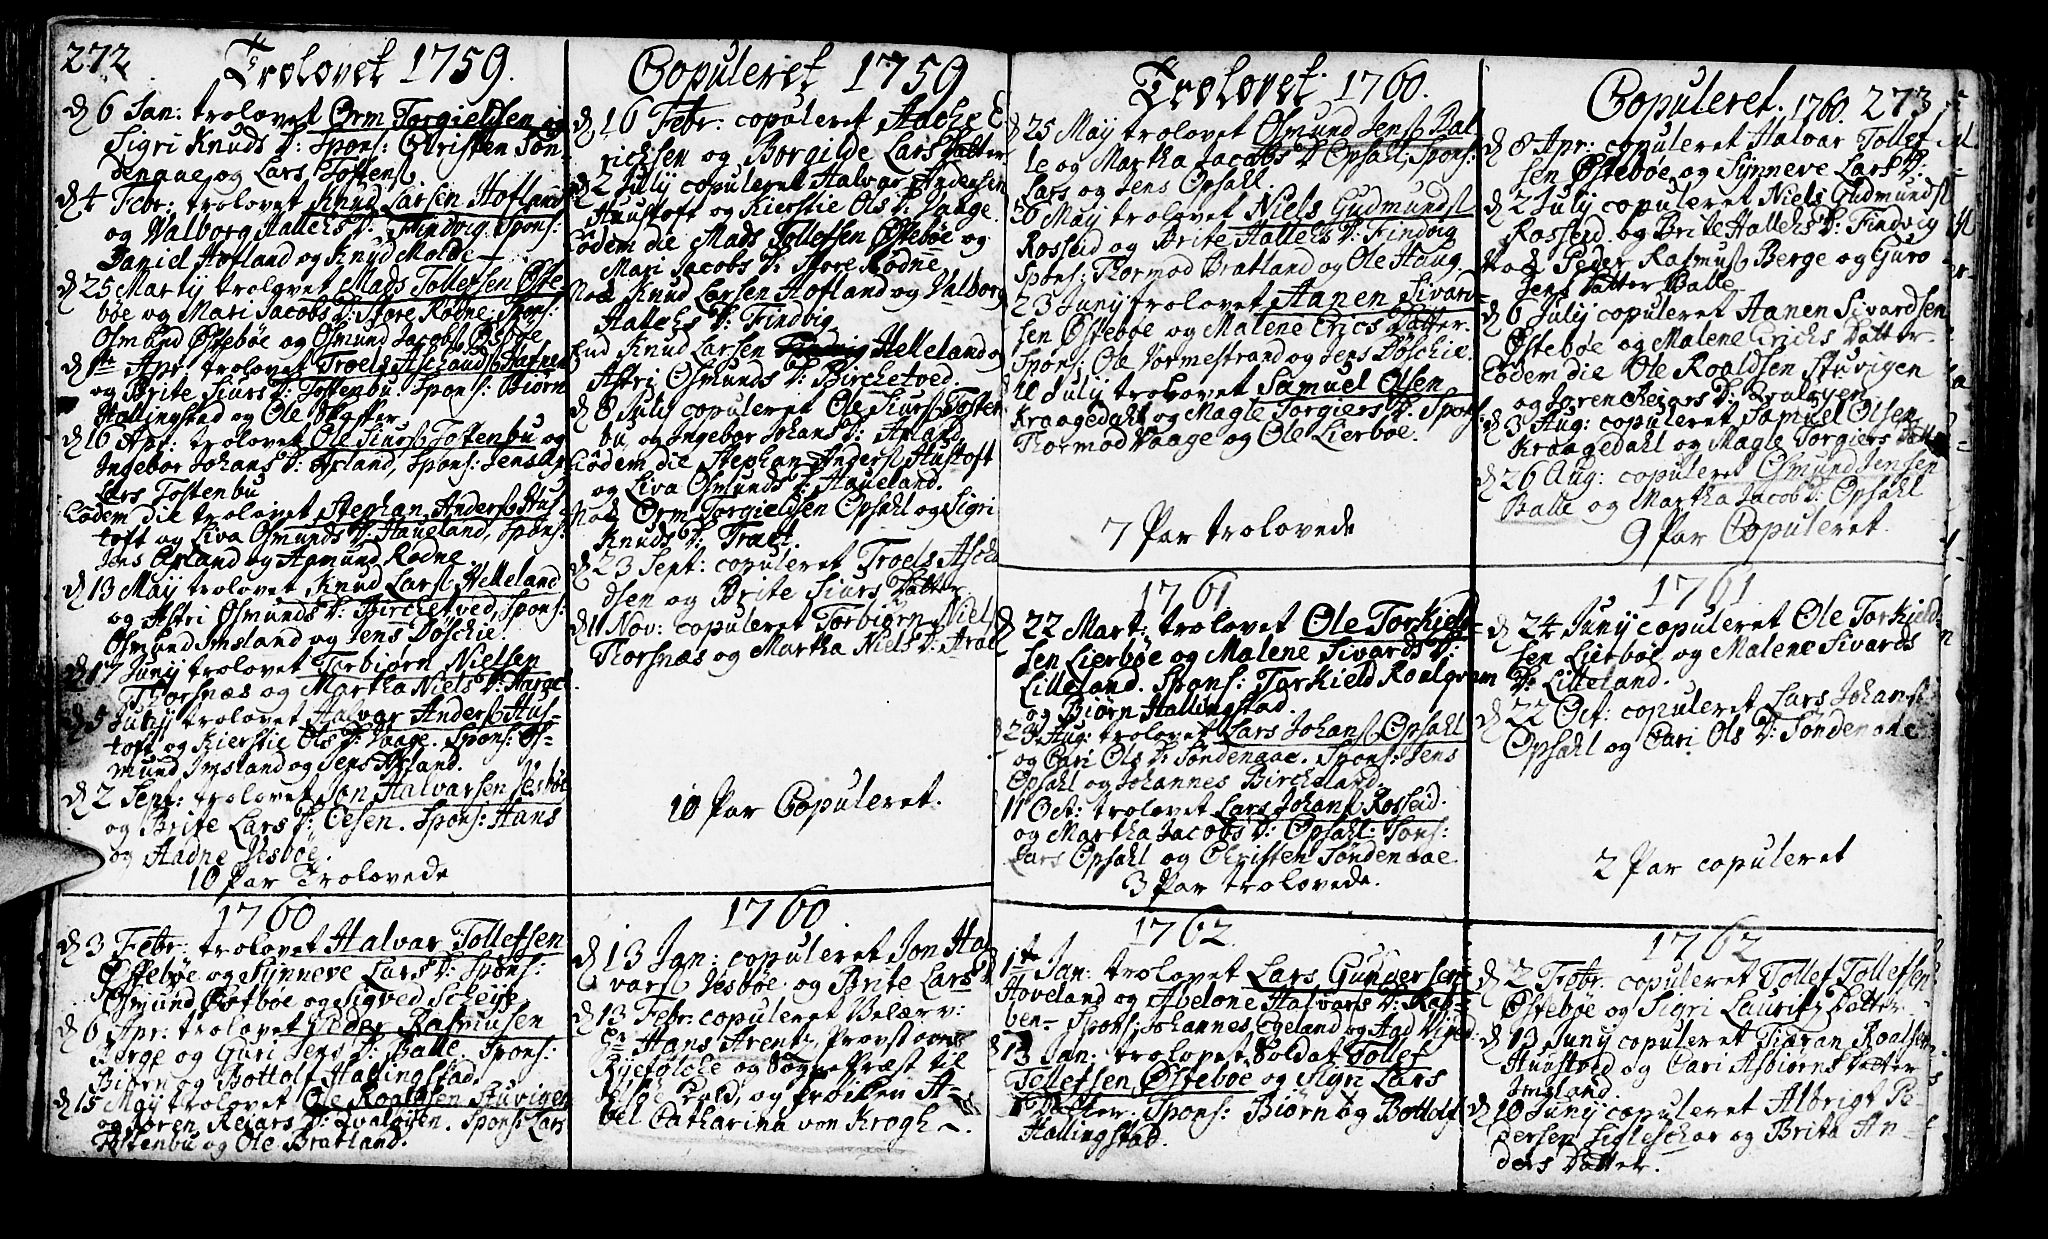 272
Trolovet 1759.
đ 6 Jan: trolovet Orm Torgieldsen og
Sigri Knuds D: Spons: Christen Søn-
denaae og Lars Tostensß
đ 4 Febr: trolovet Knud Larsen Hofland
og Valborg Hallehs D: Findvig. Spons:
Daniel Hofland og Knud Molde —
đ 25 Martij trolovet Mads Tollefsen Øste-
bøe og Mari Jacobs D: Store Rødne. Spons:
Osmund Østebøe og Osmund Jacobs
đ 1te Apr: trolovet Troels
og Brite Siurs D: Tostenbu. Spons: Biørn
Hallingstad og Ole
đ 16 Apr: trolovet Ole Siursß Tostenbu og
Ingebor Johans D: Apland, Spons: Jens
Lars Tostenbu
Eodem die trolovet Stephan Andersß Hus-
toft og Liva Osmunds D: Haueland, Spons:
Jens Apland og Aamund Rødne.
đ 13 Maij trolovet Knud Larsß Helleland
og Astri Osmunds D: Birchetved, Spons:
Osmund Imsland og Jens Døschie.
đ 17 Junij trolovet Torbiørn Nielsen
Thorsnæs og Martha Niels D:
đ 5 Junij trolovet Halvar Andersß Hus-
toft og Kierstie Ols D: Vaage. Spons: Os-
mund Imsland og Jens Apland.
đ 2 Sept: trolovet Jon Halvarsen Vesbøe
og Brite Lars D: Øesen. Spons: Hans
og Aadne Vesbøe.
10 Par Trolovede
1760
đ 3 Febr: trolovet Halvar Tollefsen
Østebøe og Synneve Lars D: Spons:
Osmund Østbøe og Sigved
đ 6 Apr: trolovet Peder Rasmusen
Berge og Guri Jens D: Balle. Spons:
Biørn og Bottolf Hallingstad.
đ 15 Maij trolovet Ole Roaldsen Stuvigen
og Søren Reiars D: Qvaløyen. Spons: Lars
Tostenbu og Ole Bratland.
Copuleret 1759
đ 16 Febr: copuleret Aache E
richsen og Borgilde Lars Datter
đ 2 Julij copuleret Halvar Andersen
Huustoft og Kierstie Ols D: Vaage.
Eodem die Mads Tollefsen Østebøe og
Mari Jacobs D: Store Rødne
Nok Knud Larsen Hofland og Valborg
Hallehs D: Findvig
End Knud Larsen Helleland og
Astri Osmunds D: Birchetved.
đ 8 Julij copuleret Ole Siursß Tosten
bu og Ingebor Johans D: Apland
Eodem die Stephan Andersß Hustoft
og Liva Osmunds D: Haueland.
Nok Orm Torgieldsen Opsahl og Sigri
Knuds D: Træet.
đ 23 Sept: copuleret Troels Asch
dsen og Brite Siurs Datter
đ 11 Nov: copuleret Torbiørn Niels
Thorsnæs og Martha Niels D:
10 Par Copuleret.
1760
đ 13 Jan: copuleret Jon Hal
varsß Vesbøe og Brite Lars D
đ 13 Febr: copuleret Velærv:
Hr Hans Arentz, Provst over
Ryefølche og Sogne Præst til
Jelsøe Kald, og Frøiken A-
bel Catharina von Krogh —.
Trolovet 1760.
đ 25 Maij trolovet Osmund Jensß Bal
le og Martha Jacobs D Opsahl, Spons:
Lars og Jens Opsahl.
26 Maij trolovet Niels Gudmundsß
Rosseid og Brite Hallehs D: Findvig
Spons: Thormod Bratland og Ole Haug
23 Junij trolovet Aanen Sivard-
sen Østebøe og Malene Erics Datter.
Spons: Ole Vormestrand og Jens Døschie.
Julij trolovet Samuel Olsen
Kraagedahl og Magle Torgiers D: Spons:
Thormod Vaage og Ole Lierbøe.
7 Par trolovede
1761
đ 22 Mart: trolovet Ole Torkield-
sen Lierbøe og Malene Sivards D:
Lilleland. Spons: Torkield Roalqvam
og Biørn Hallingstad.
23 Aug: trolovet Lars Johansß Opsahl
og Cari Ols D: Søndenaae. Spons: Jens
Opsahl og Johannes Bircheland.
11 Oct: trolovet Lars Johansß Rosseid.
og Martha Jacobs D: Opsahl. Spons:
Lars Opsahl og Christen Søndenaae
3 Par trolovede.
1762
1te Jan: trolovet Lars Gundersen
Hoveland og Abelone Halvars D:
Spons: Johannes Egeland og
đ 13 Jan: trolovet Soldat Tollef
Tollefsen Østebøe og Sigri Lars
Datter. Spons: Biørn og Bottolf
Hallingstad.
Copuleret. 1760. 273
đ 8 Apr: copuleret Halvar Tollef
sen Østebøe og Synneve Lars D:
đ 2 Julij copuleret Niels Gudmundsß
Rosseid og Brite Hallehs D: Findvig
Nok Peder Rasmusß Berge og Guro
Jens Datter Balle
đ 6 Julij copuleret Aanen Sivardsen
Østebøe og Malene Erichs Datter
Eodem die Ole Roaldsen Stuvigen
og Søren Reiars D: Qvaløyen
đ 3 Aug: copuleret Samuel Olsen
Kraagedahl og Magle Torgiers Datter
đ 26 Aug: copuleret Osmund Jensen
Balle og Martha Jacobs D: Opsahl
9 Par Copuleret.
1761
đ 24 Junij copuleret Ole Torkield-
sen Lierbøe og Malene Sivards
D: Lilleland.
đ 22 Oct: copuleret Lars Johansß
Opsahl og Cari Ols D: Søndenaae
2 Par copuleret
1762
đ 2 Febr: copuleret Tollef Tollefsen
Østebøe og Sigri Lauritz Datter
đ 13 Junij copuleret
og Cari Asbiørns Datter
Imsland.
đ 10 Junij copuleret Albrigt P-
dersen og Brita An-
ders Datter.